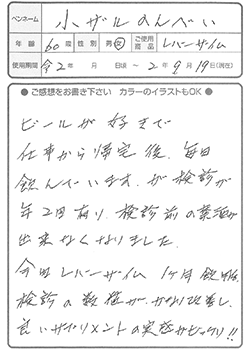 ペンネーム 小ザルのんべい
年齢 60歳 性別 男・女 ご使用商品 レバーザイム
使用期間 令2年 月 日頃 〜 2年9月19日(現在)
● ご感想をお書き下さい カラーのイラストもOK ●
ビールが好きで
仕事から帰宅後、毎日
飲んでいます。が検診が
年2回有り、検診前の禁酒が
出来なくなりました。
今回レバーザイム 1ヶ月飲用後、
検診の数値がかなり改善し
良いサプリメントの実感がビックリ!!